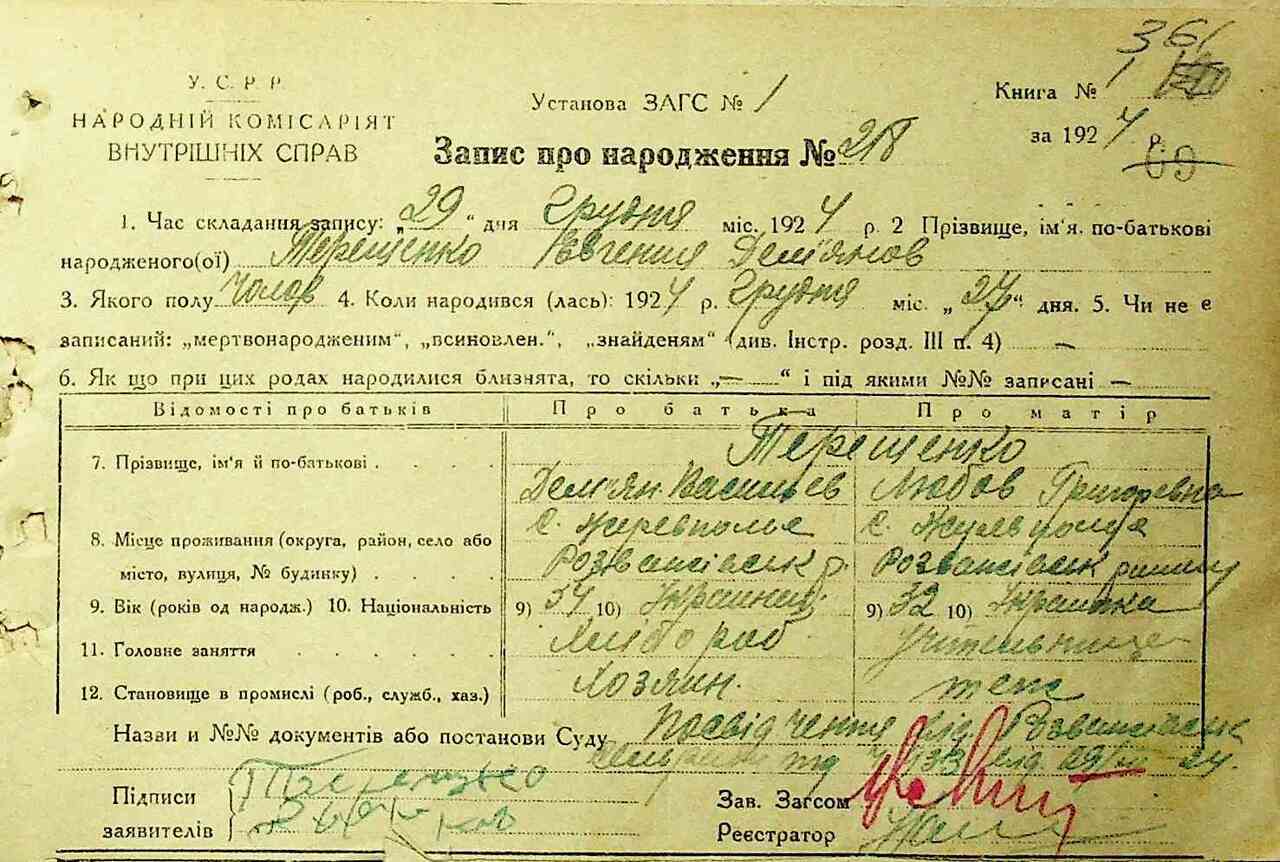 361
У. С. Р. Р.
НАРОДНІЙ КОМІСАРІЯТ
ВНУТРІШНІХ СПРАВ
Установа ЗАГС № 1
Книга № 1
за 1924 р.
69
Запис про народження № 218
1. Час складання запису: „29“ дня Грудня міс. 1924 р. 2 Прізвище, ім'я. по-батькові
народженого(ої) Терещенко Євгения Дем'янов
3. Якого полу Чолов 4. Коли народився (лась): 1924 р. Грудня міс. „27“ дня. 5. Чи не є
записаний: „мертвонародженим“, „всиновлен.“, „знайденям“ (див. Інстр. розд. III п. 4) —
6. Як що при цих родах народилися близнята, то скільки „—“ і під якими №№ записані —
Відомості про батьків Про батька Про матір
Терещенко
7. Прізвище, ім'я й по-батькові . . . .
Дем'ян Васильев Любов Григоревна
8. Місце проживання (округа, район, село або с. с.
місто, вулиця, № будинку) . . . . Розважівськ р. Розважівськ
9. Вік (років од народж.) 10. Національність 9) 34 10) Українец 9) 32 10) Українка
11. Головне заняття . . . . . Хлібороб Учительница
12. Становище в промислі (роб., служб., хаз.) Хозяин.
Назви и №№ документів або постанови Суду Посвідчення від Розважівськ
Підписи
заявителів
Зав. Загсом
Реєстратор